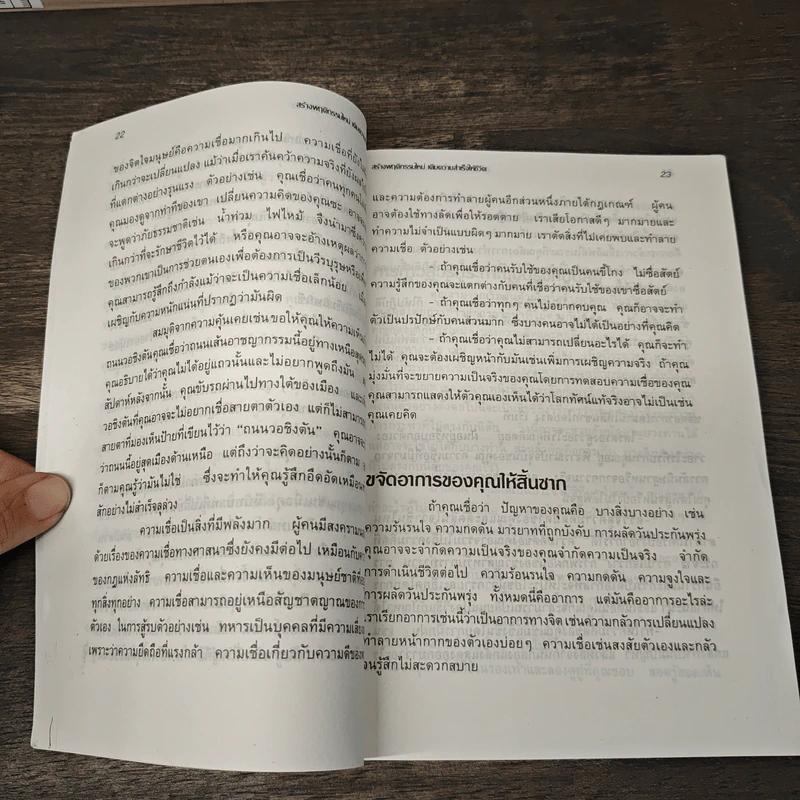 22
สร้างพฤติกรรมใหม่
ของจิตใจมนุษย์คือความเชื่อมากเกินไป ความเชื่อที่ยัง
เกินกว่าจะเปลี่ยนแปลง แม้ว่าเมื่อเราค้นคว้าความจริงที่
ที่แตกต่างอย่างรุนแรง ตัวอย่างเช่น คุณเชื่อว่าคนทุกคน
คุณมองดูจากท่าที่ของเขา เปลี่ยนความคิดของคุณซะ
จะพูดว่าภัยธรรมชาติเช่น น้ำท่วม ไฟไหม้ จึงนำมาซึ่ง
เกินกว่าที่จะรักษาชีวิตไว้ได้ หรือคุณอาจจะอ้างเหตุผล
ของพวกเขาเป็นการช่วยตนเองเพื่อต้องการเป็นวีรบุรุษ
คุณสามารถรู้สึกถึงกำลังแม้ว่าจะเป็นความเชื่อเล็กน้อย
เผชิญกับความหนักแน่นที่ปรากฏว่ามันผิด
สมมุติจากความคุ้นเคยเช่น ขอให้คุณให้ความ
ถนนวอชิงตันคุณเชื่อว่าถนนเส้นอาชญากรรมนี้อยู่ทางเหนือ
คุณอธิบายได้ว่าคุณไม่ได้อยู่แถวนั้นและไม่อยากพูดถึงมัน
สัปดาห์หลังจากนั้น คุณขับรถผ่านไปทางใต้ของเมือง
วอชิงตันที่คุณอาจจะไม่อยากเชื่อสายตาตัวเอง แต่ก็ไม่
สายตาที่มองเห็นป้ายที่เขียนไว้ว่า “ถนนวอชิงตัน” คุณ
ว่าถนนนี้อยู่สุดเมืองด้านเหนือ แต่ถึงว่าจะคิดอย่างนั้นก็ตาม
ก็ตามคุณรู้ว่ามันไม่ใช่ ซึ่งจะทำให้คุณรู้สึกอึดอัด
สักอย่างไม่สำเร็จลุล่วง
ความเชื่อเป็นสิ่งที่มีพลังมาก ผู้คนมีสงคราม
ด้วยเรื่องของความเชื่อทางศาสนาซึ่งยังคงมีต่อไป เหมือนกับ
ของกฎแห่งลัทธิ ความเชื่อและความเห็นของมนุษย์ชาติ
ทุกสิ่งทุกอย่าง ความเชื่อสามารถอยู่เหนือสัญชาตญาณของ
ตัวเอง ในการสู้รบตัวอย่างเช่น ทหารเป็นบุคคลที่มีความ
เพราะว่าความยึดถือที่แรงกล้า ความเชื่อเกี่ยวกับความดีของ
สร้างพฤติกรรมใหม่ เติมความสำเร็จให้ชีวิต
23
และความต้องการทำลายผู้คนอีกส่วนหนึ่งภายใต้กฎเกณฑ์ ผู้คน
อาจต้องใช้ทางลัดเพื่อให้รอดตาย เราเสียโอกาสดีๆ มากมายและ
ทำความไม่จำเป็นแบบผิดๆ มากมาย เราตัดสิ่งที่ไม่เคยพบและทำลาย
ความเชื่อ ตัวอย่างเช่น
- ถ้าคุณเชื่อว่าคนรับใช้ของคุณเป็นคนขี้โกง ไม่ซื่อสัตย์
ความรู้สึกของคุณจะแตกต่างกับคนที่เชื่อว่าคนรับใช้ของเขาซื่อสัตย์
- ถ้าคุณเชื่อว่าทุกๆ คนไม่อยากคบคุณ คุณก็อาจจะทำ
ตัวเป็นปรปักษ์กับคนส่วนมาก ซึ่งบางคนอาจไม่ได้เป็นอย่างที่คุณคิด
- ถ้าคุณเชื่อว่าคุณไม่สามารถเปลี่ยนอะไรได้ คุณก็จะทำ
ไม่ได้ คุณจะต้องเผชิญหน้ากับมันเช่นเพิ่มการเผชิญความจริง ถ้าคุณ
มุ่งมั่นที่จะขยายความเป็นจริงของคุณโดยการทดสอบความเชื่อของคุณ
คุณสามารถแสดงให้ตัวคุณเองเห็นได้ว่าโลกทัศน์แท้จริงอาจไม่เป็นเช่น
คุณเคยคิด
ขจัดอาการของคุณให้สิ้นซาก
ถ้าคุณเชื่อว่า ปัญหาของคุณคือ บางสิ่งบางอย่าง เช่น
ความร้นรนใจ ความกดดัน มารยาทที่ถูกบังคับ การผลัดวันประกันพรุ่ง
คุณอาจจะจำกัดความเป็นจริงของคุณจำกัดความเป็นจริง จำกัด
การดำเนินชีวิตต่อไป ความร้อนรนใจ ความกดดัน ความจูงใจและ
การผลัดวันประกันพรุ่ง ทั้งหมดนี้คืออาการ แต่มันคืออาการอะไรล่ะ
เราเรียกอาการเช่นนี้ว่าเป็นอาการทางจิต เช่นความกลัวการเปลี่ยนแปลง
ทำลายหน้ากากของตัวเองบ่อยๆ ความเชื่อเช่นสงสัยตัวเองและกลัว
จนรู้สึกไม่สะดวกสบาย